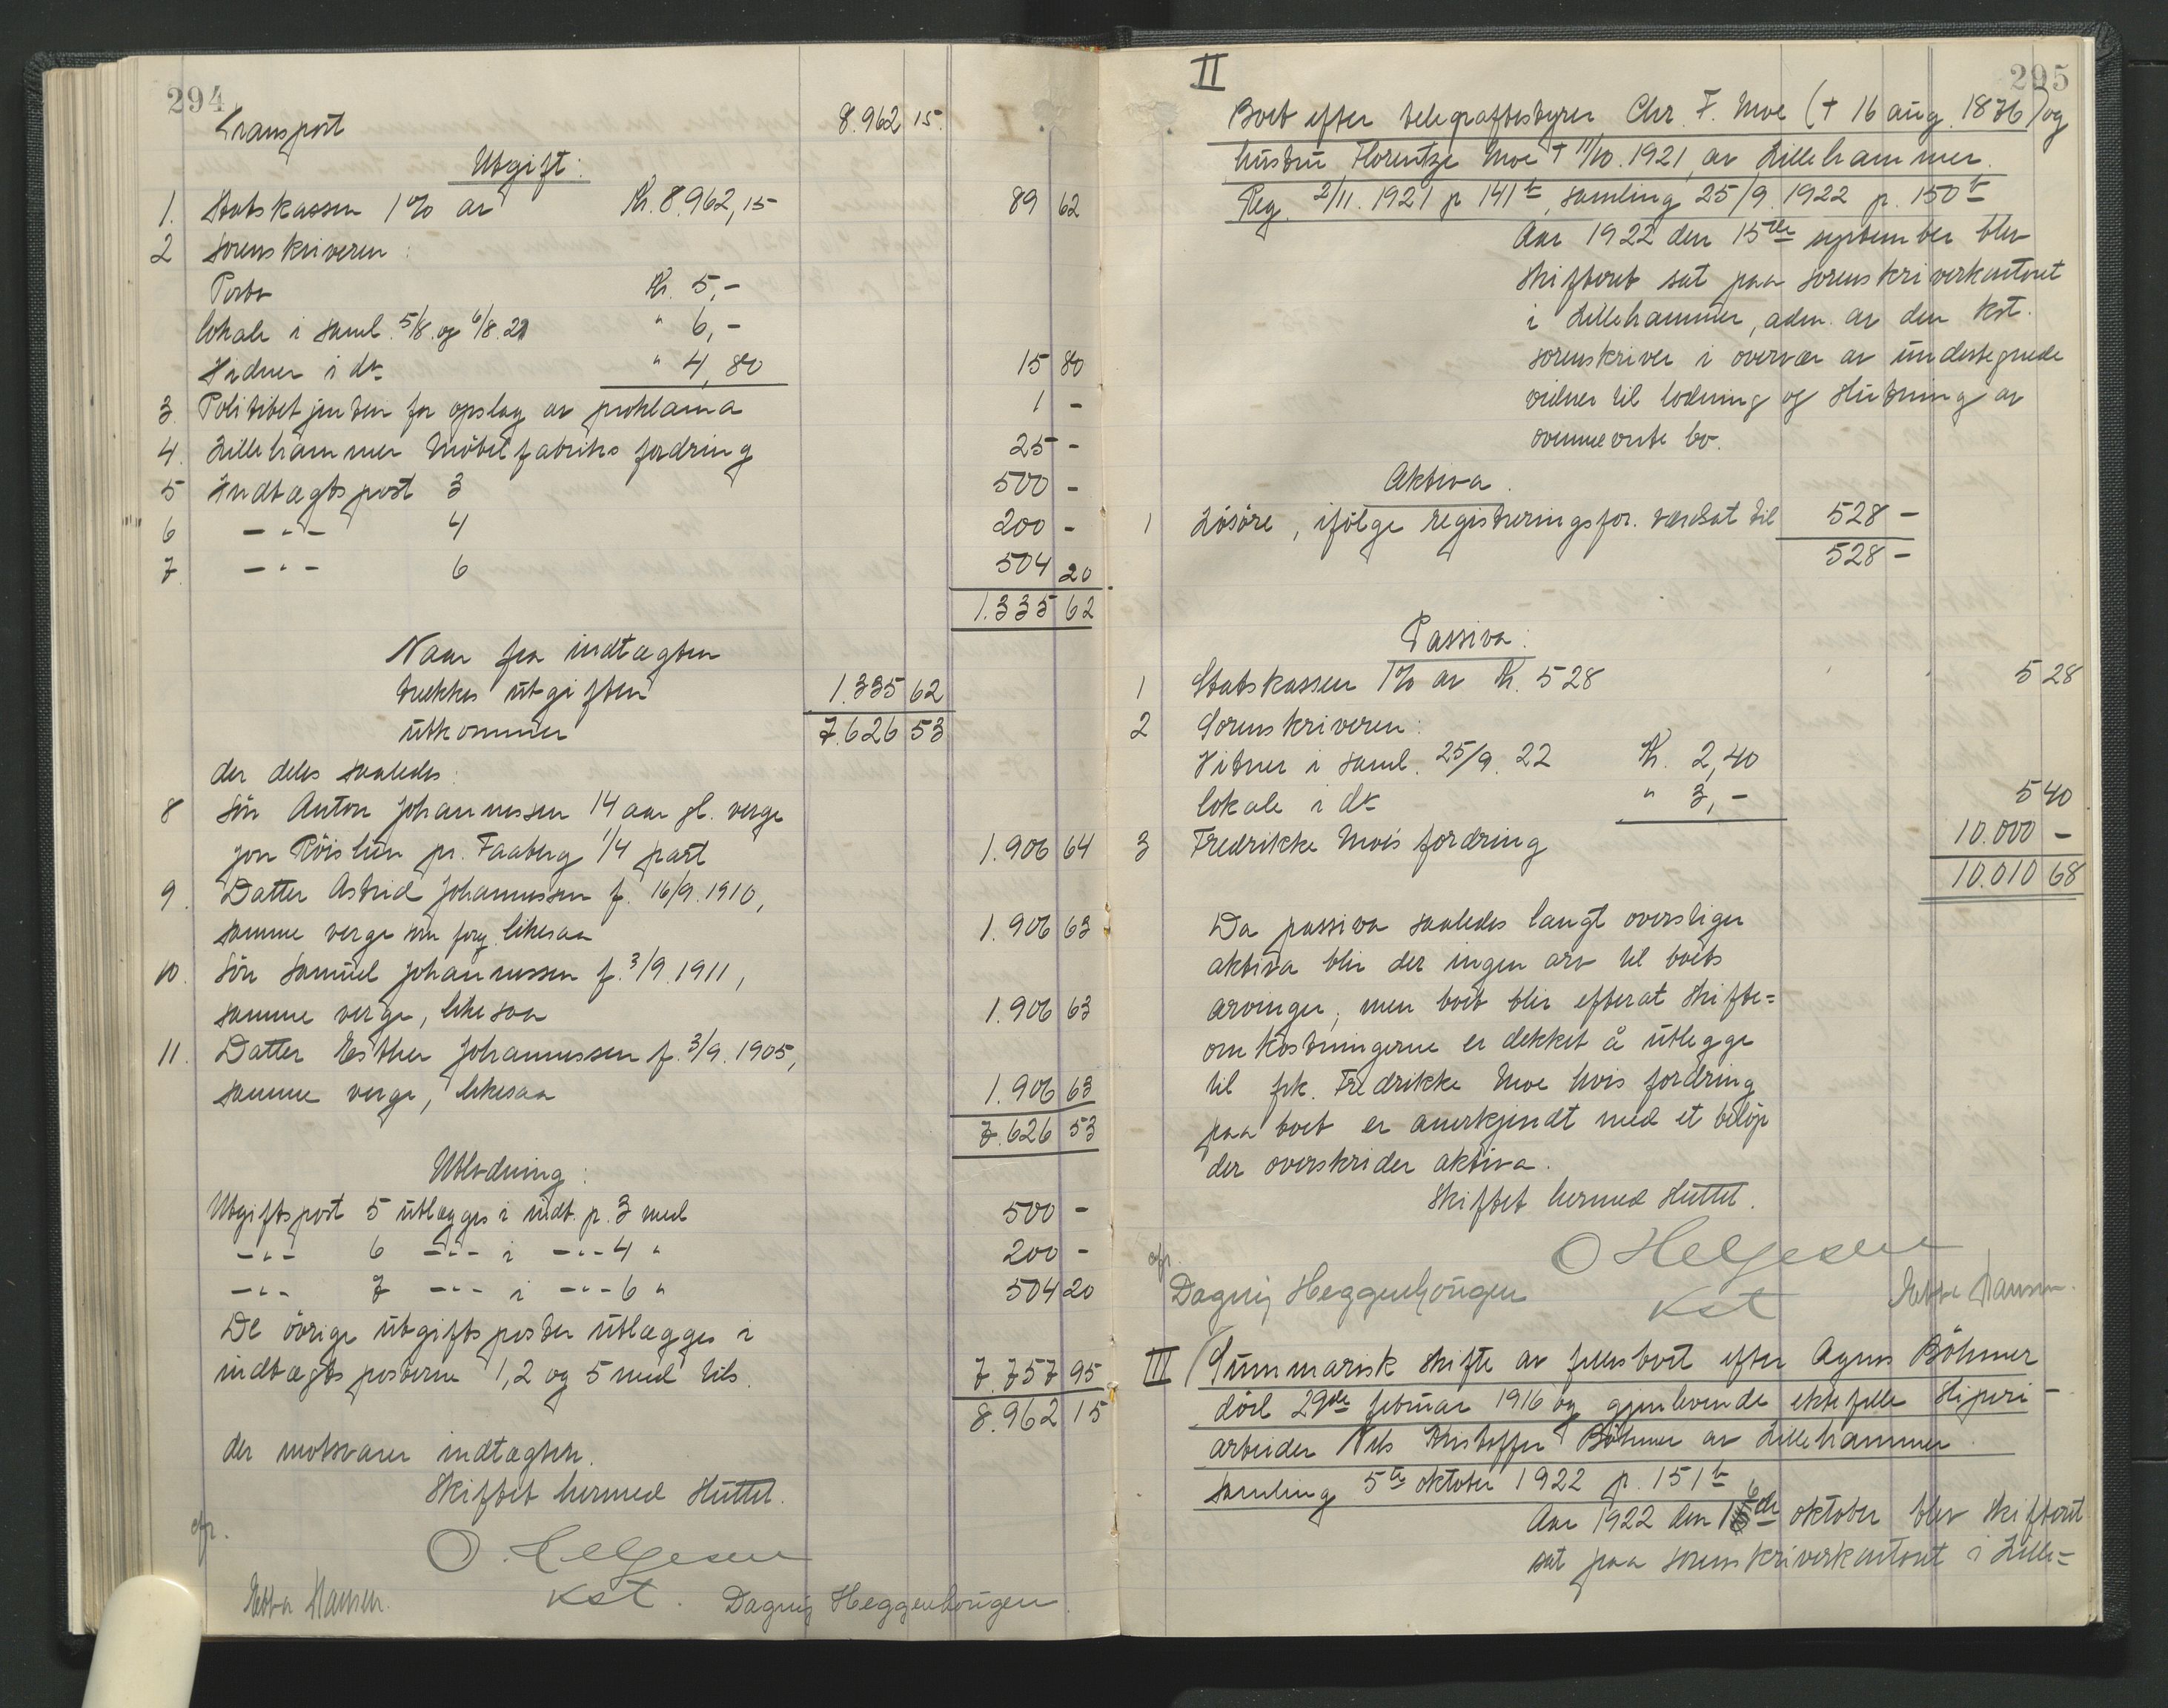 294
Transport 8.962 15.
Utgift:
1. Statskassen 1% av Kr. 8.962,15 89 62
2 Sorenskriveren:
Porto Kr. 5,-
lokale i saml. 5/8. og 6/8. 21 " 6,-
Vidner i do " 4,80 15 80
3. Politibetjenten for opslag av proklama 1 -
4. Lillehammer Möbelfabriks fordring 25 -
5 Indtægtspost 3 500 -
6 -"- 4 200 -
7. -"- 6 504 20
1.335 62
Naar fra indtægten
trekkes utgiften 1.335 62
utkommer 7.626 53
der deles saaledes:
8 Sön Anton Johannessen 14 aar gl. verge
Jon Röislien pr. Faaberg 1/4 part 1.906 64
9. Datter Astrid Johannessen f. 16/9. 1910,
samme verge som forg. likesaa 1.906 63
10. Sön Samuel Johannessen f. 3/9. 1911,
samme verge, likesaa 1.906 63
11. Datter Esther Johannessen f. 3/9. 1905,
samme verge, likesaa 1.906 63
7.626 53
Utlodning:
Utgiftspost 5 utlægges i indt. p. 3 med 500 -
-"- 6 -"- i -"- 4 " 200 -
-"- 7 -"- i -"- 6 " 504 20
De övrige utgiftsposter utlægges i
indtægtsposterne 1, 2 og 5 med tils. 7.757 95
8.962 15
der motsvarer indtægten.
Skiftet hermed sluttet.
O. Helgesen
Kst.
Ebba Hansen. Dagny Heggenhougen.
295
II
Boet efter telegrafbestyrer Chr. F. Moe († 16 aug. 1876) og
hustru Florentze Moe † 11/10. 1921, av Lillehammer.
Reg. 2/11. 1921 p 141 b, samling 25/9. 1922 p. 150 b
Aar 1922 den 15de september blev
skifteret sat paa sorenskriverkontoret
i Lillehammer, adm. av den kst.
sorenskriver i overvær av undertegnede
vidner til lodning og slutning av
ovennevnte bo.
Aktiva.
1 Lösöre, ifölge registreringsfor. verdsat til 528 -
528 -
Passiva:
1 Statskassen 1% av Kr. 528 5 28
2 Sorenskriveren:
Vidner i saml. 25/9. 22 Kr. 2,40
lokale i do " 3,- 5 40
3 Fredrikke Moe's fordring 10.000 -
10.010 68
Da passiva saaledes langt overstiger
aktiva blir der ingen arv til boets
arvinger, men boet blir efterat skifte=
omkostningerne er dekket å utlegge
til frk. Fredrikke Moe hvis fordring
paa boet er anerkjendt med et belöp
der overskrider aktiva.
Skiftet hermed sluttet.
O Helgesen
Dagny Heggenhougen Kst Ebba Hansen.
III/ Summarisk skifte av fellesboet efter Agnes Böhmer
död 29de februar 1916 og gjenlevende ektefelle sliperi-
arbeider Nils Kristoffer Böhmer av Lillehammer
samling 5te oktober 1922 p. 151 b
Aar 1922 den 16de oktober blev skifteret
sat paa sorenskriverkontoret i Lille=